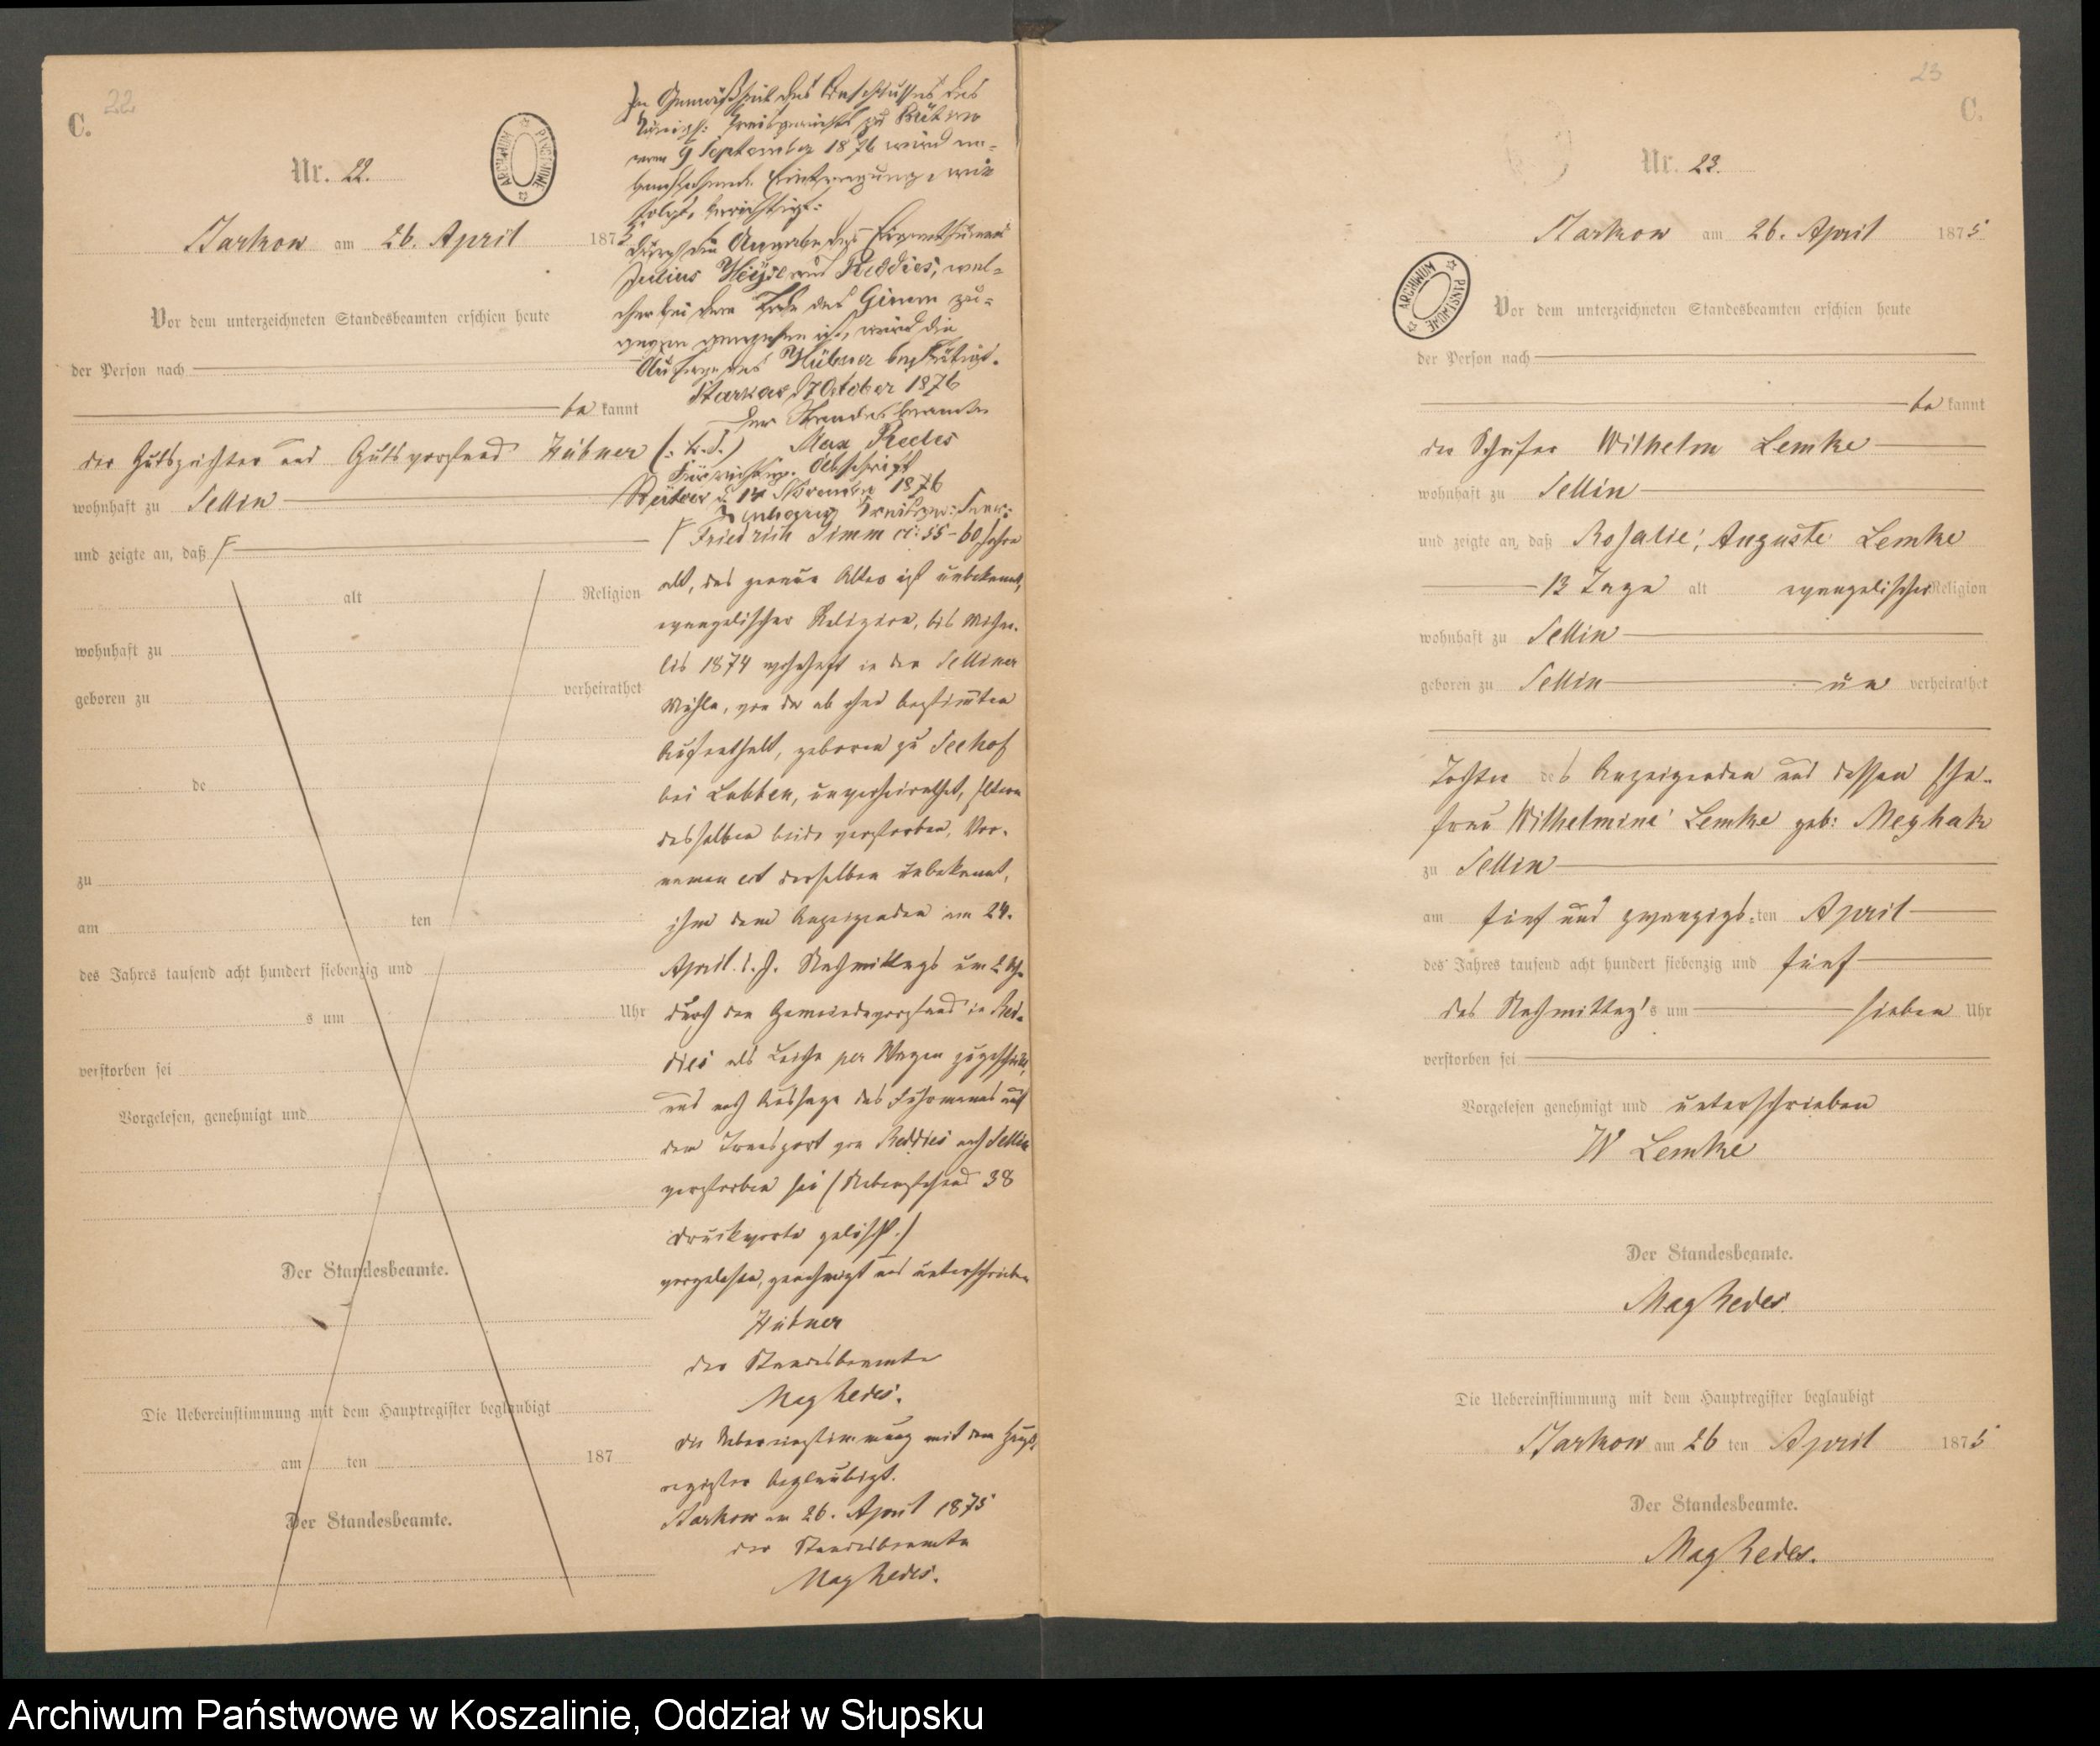 22
C.
Nr. 22.
ARCHIWUM PAŃSTWOWE
Starkow am 26. April 1875
Vor dem unterzeichneten Standesbeamten erschien heute
der Person nach
be kannt
der Gutspächter und Gutsvorstand Hübner
wohnhaft zu Sellin
und zeigte an, daß
alt Religion
wohnhaft zu
geboren zu verheirathet
de
zu
am ten
des Jahres tausend acht hundert siebenzig und
s um Uhr
verstorben sei
Vorgelesen, genehmigt und
Der Standesbeamte.
Die Uebereinstimmung mit dem Hauptregister beglaubigt
am ten 187
Der Standesbeamte.
In Gemäßheit des Beschlusses des
Königl: Kreisgerichts zu Bütow
vom 9 September 1876 wird
Eintragung, wie
folgt, berichtigt:
Durch die Angabe des Eigenthümers
Julius aus Reddies, wel-
cher bei dem Tode des Simm zu-
gegen gewesen ist, wird die
Aussage des Hübner bestätigt.
Starkow, 7 October 1876
Der Standesbeamte
(: L.S.)
Abschrift
Bütow November 1876
Friedrich Simm cc: 55-60 Jahre
alt, das genaue Alter ist unbekannt,
evangelischer Religion, bis Michae-
lis 1874 wohnhaft in der Selliner
Mühle, von da ab ohne bestimmten
Aufenthalt, geboren zu Seehof
bei Labben, unverheirathet, Eltern
desselben beide verstorben, Vor-
namen derselben unbekannt,
ihm dem Anzeigenden am 24.
April d. J. Nachmittags um 2 Uhr
durch den Gemeindevorstand in Red-
dies als Leiche per Wagen zugeschickt,
und nach Aussage des Fuhrmanns auf
dem Transport von Reddies nach Sellin
verstorben sei (Nebenstehend 38
Druckworte gelöscht.)
vorgelesen, genehmigt und unterschrieben
Hübner
der Standesbeamte
die Uebereinstimmung mit dem Haupt-
register beglaubigt.
Starkow am 26. April 1875
der Standesbeamte
23
C.
Nr. 23.
Starkow am 26. April 1875
ARCHIWUM PAŃSTWOWE
Vor dem unterzeichneten Standesbeamten erschien heute
der Person nach
be kannt
der Schäfer Wilhelm Lemke
wohnhaft zu Sellin
und zeigte an, daß Rosalie, Auguste Lemke
13 Tage alt evangelischer Religion
wohnhaft zu Sellin
geboren zu Sellin un verheirathet
Tochter des Anzeigenden und dessen Ehe-
frau Wilhelmine Lemke geb:
zu Sellin
am fünf und zwanzigs-ten April
des Jahres tausend acht hundert siebenzig und fünf
des Nachmittag's um sieben Uhr
verstorben sei
Vorgelesen genehmigt und unterschrieben
W Lemke
Der Standesbeamte.
Die Uebereinstimmung mit dem Hauptregister beglaubigt
Starkow am 26 ten April 1875
Der Standesbeamte.
Archiwum Państwowe w Koszalinie, Oddział w Słupsku